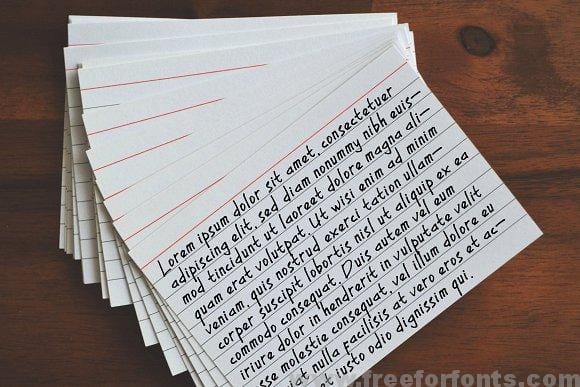 Lorem ipsum dolor sit amet, consectetuer
adipiscing elit, sed diam nonummy nibh euis-
mod tincidunt ut laoreet dolore magna ali-
quam erat volutpat. Ut wisi enim ad minim
veniam, quis nostrud exerci tation ullam-
corper suscipit lobortis nisl ut aliquip ex ea
commodo consequat. Duis autem vel eum
iriure dolor in hendrerit in vulputate velit
sse molestie consequat, vel illum dolore eu
iat nulla facilisis at vero eros et ac-
et iusto odio dignissim qui.
www.freeforfonts.com